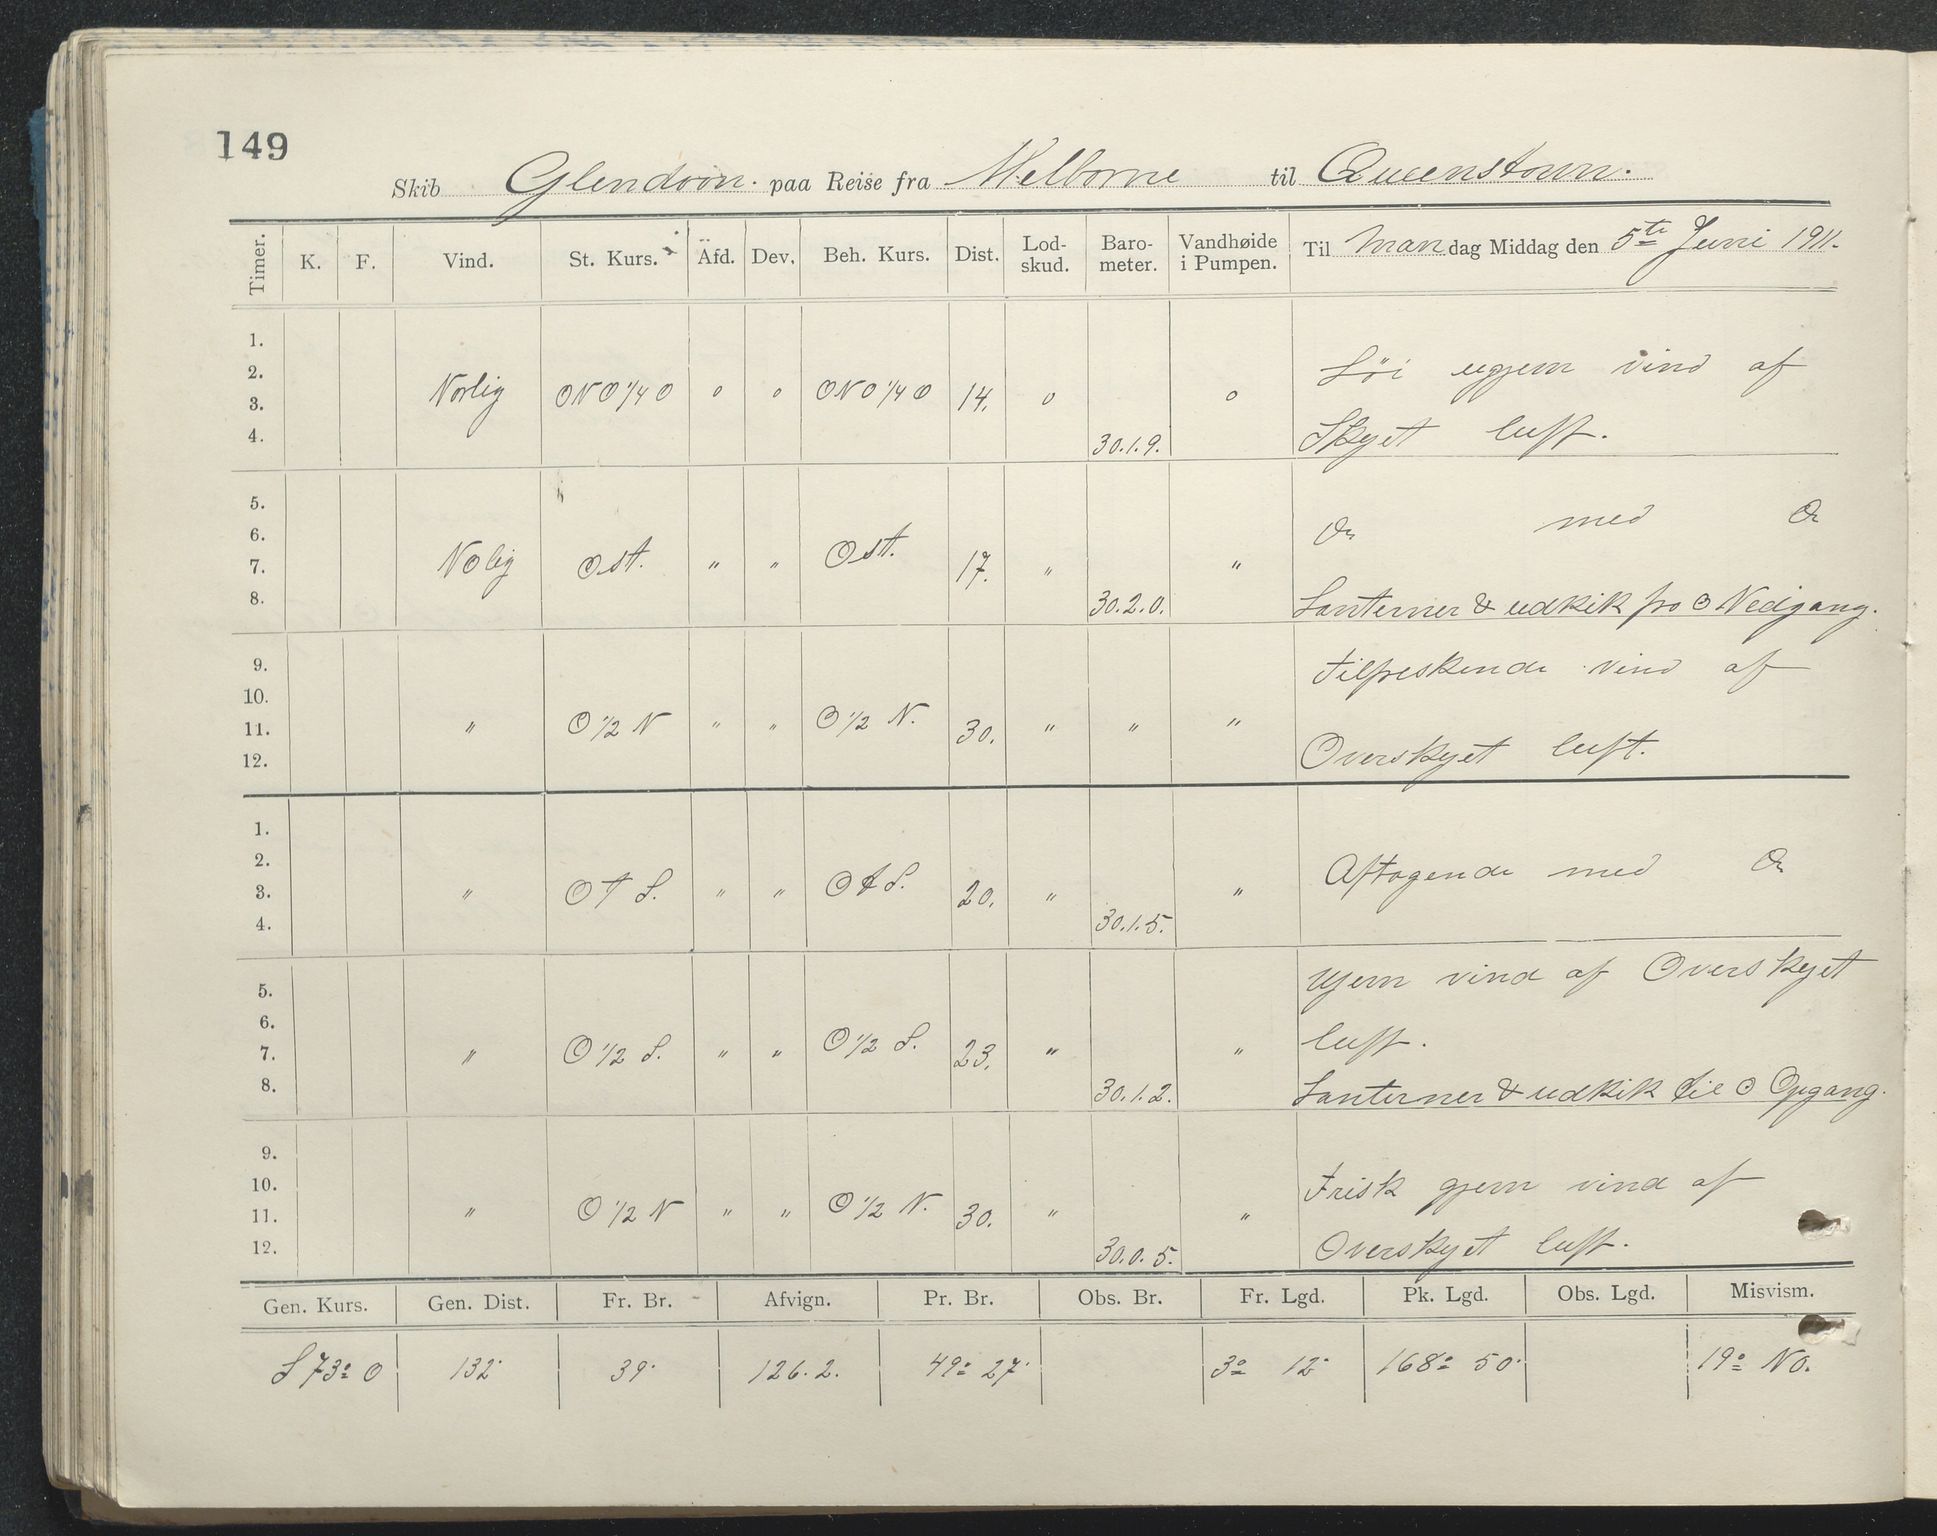 149
Skib Glendoon. paa Reise fra Melborne til Queenstown.
Timer. K. F. Vind. St. Kurs. Afd. Dev. Beh. Kurs. Dist. Lod-skud. Baro-meter. Vandhøide i Pumpen. Til Mandag Middag den 5te Juni 1911.
1.
2. Löi ugjem vind af
3. Norlig ONO 1/4 O o o ONO 1/4 O 14. o o
4. 30.1.9. Skyet luft.
5.
6. Do med Do
7. Nolig Ost. " " Ost. 17. " "
8. 30.2.0. Lanterner & udkik fra ☉ Nedgang.
9. Tilfreskende vind af
10.
11. " O 1/2 N " " O 1/2 N. 30. " " "
12. Overskyet luft.
1.
2. Aftagende med Do
3. " O t S. " " O t S. 20. " "
4. 30.1.5.
5. Ujem vind af Overskyet
6.
7. " O 1/2 S. " " O 1/2 S. 23. " " luft.
8. 30.1.2. Lanterner & udkik til ☉ Opgang.
9.
10. Frisk gjem vind af
11. " O 1/2 N " " O 1/2 N. 30. " "
12. 30.0.5. Overskyet luft.
Gen. Kurs. Gen. Dist. Fr. Br. Afvign. Pr. Br. Obs. Br. Fr. Lgd. Pk. Lgd. Obs. Lgd. Misvism.
S 73° O 132' 39' 126.2. 49° 27' 3° 12' 168° 50' 19° NO.